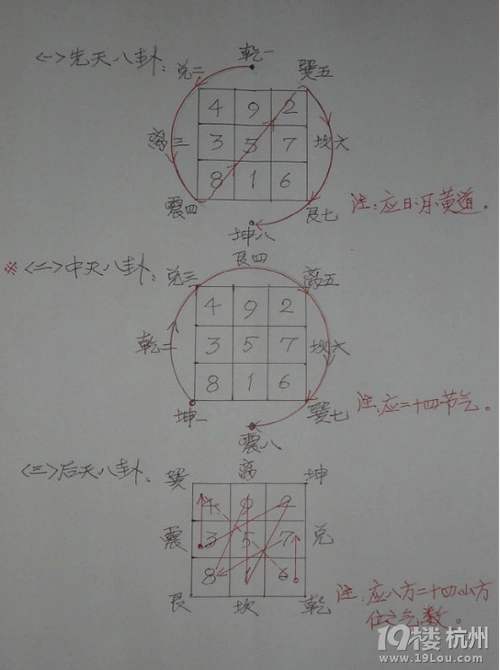 乾一
<一>先天八卦：兑二 巽五
4 9 2
离三 3 5 7 坎六
8 1 6
震四 艮七
坤八
注：应日、月、黄道。
艮四
※<二>中天八卦：兑三 离五
4 9 2
乾二 3 5 7 坎六
8 1 6
坤一 巽七
震八
注：应二十四节气。
<三>后天八卦：巽 离 坤
4 9 2
震 3 5 7 兑
8 1 6
艮 坎 乾
注：应八方二十四山方
位之气数。
19楼 杭州
www.19lou.com